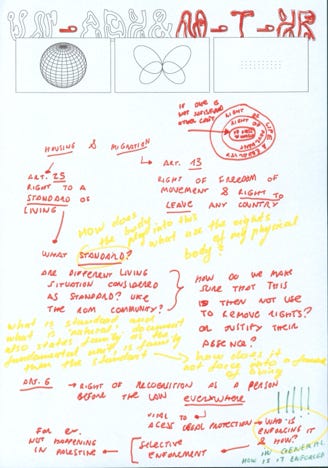 IF ONE IS
NOT SATISFIED
OTHER CAN'T
RIGHT OF
LIFE &
HOUSING & MIGRATION
ART. 25
RIGHT TO A
STANDARD OF
LIVING
ART. 13
RIGHT OF FREEDOM OF
MOVEMENT & RIGHT TO
LEAVE ANY COUNTRY
How does
the body
play into this
what are the rights
of my physical
body?
WHAT STANDARD?
ARE DIFFERENT LIVING
SITUATION CONSIDERED
AS STANDARD? LIKE
THE ROM COMMUNITY?
HOW DO WE MAKE
SURE THAT THIS
IS THEN NOT USE
TO REMOVE RIGHTS?
OR JUSTIFY THEIR
ABSENCE?
what is standard and
what is 'natural' document
also states family as the
fundamental unit is family
then the standard
how does it
not force into a
of living
ART. 6 → RIGHT OF RECOGNITION AS A PERSON
BEFORE THE LAW EVERYWHERE
VITAL TO
ACCESS LEGAL PROTECTION → WHO IS
ENFORCING IT
& HOW?
FOR EX.
NOT HAPPENING
IN PALESTINE
SELECTIVE
ENFORCEMENT
IN GENERAL
HOW IS IT ENFORCED